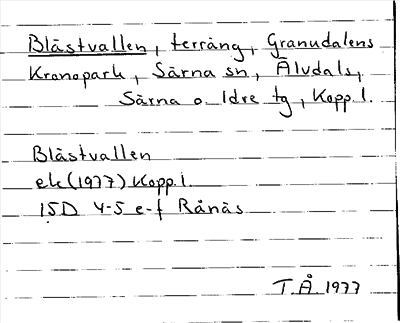 Blästvallen, terräng, Granudalens
Kronopark, Särna sn, Älvdals,
Särna o Idre tg, Kopp.l.
Blästvallen
ek(1977) Kopp.l.
15D 4-5 e-f Rånäs
T.Å 1977